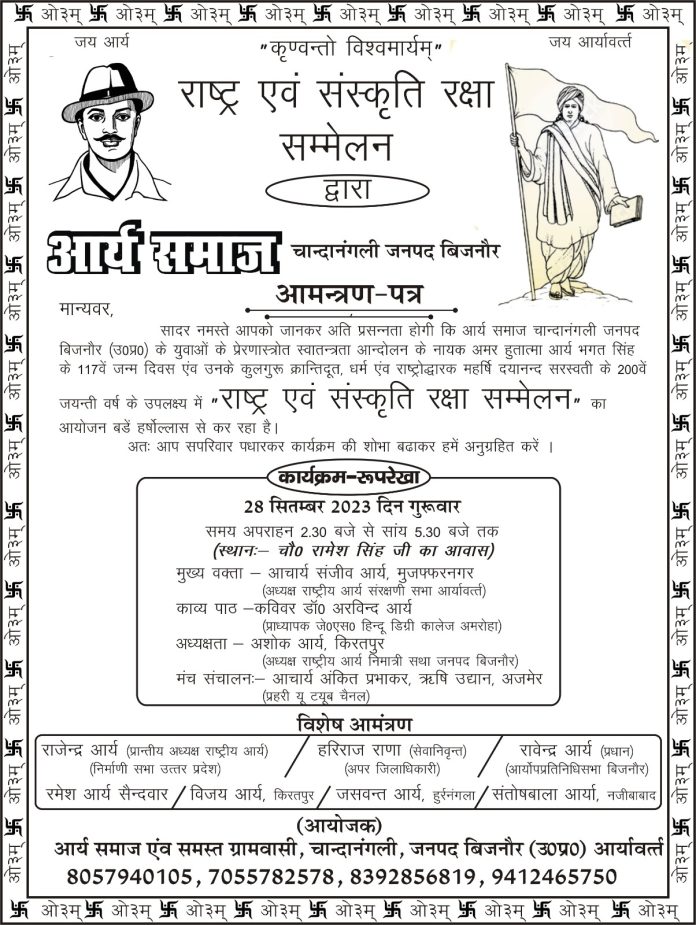 जय आर्य
"कृण्वन्तो विश्वमार्यम्"
जय आर्यावर्त्त
राष्ट्र एवं संस्कृति रक्षा
सम्मेलन
द्वारा
आर्य समाज चान्दानंगली जनपद बिजनौर
आमन्त्रण-पत्र
मान्यवर,
सादर नमस्ते आपको जानकर अति प्रसन्नता होगी कि आर्य समाज चान्दानंगली जनपद
बिजनौर (उ0प्र0) के युवाओं के प्रेरणास्त्रोत स्वातन्त्रता आन्दोलन के नायक अमर हुतात्मा आर्य भगत सिंह
के 117वें जन्म दिवस एंव उनके कुलगुरू क्रान्तिदूत, धर्म एंव राष्ट्रोद्धारक महर्षि दयानन्द सरस्वती के 200वें
जयन्ती वर्ष के उपलक्ष्य में "राष्ट्र एवं संस्कृति रक्षा सम्मेलन" का
आयोजन बडें हर्षोल्लास से कर रहा है।
अतः आप सपरिवार पधारकर कार्यक्रम की शोभा बढाकर हमें अनुग्रहित करें ।
कार्यक्रम-रूपरेखा
28 सितम्बर 2023 दिन गुरूवार
समय अपराहन 2.30 बजे से सांय 5.30 बजे तक
(स्थानः– चौ0 रामेश सिंह जी का आवास)
मुख्य वक्ता – आचार्य संजीव आर्य, मुजफ्फरनगर
(अध्यक्ष राष्ट्रीय आर्य संरक्षणी सभा आर्यावर्त्त)
काव्य पाठ –कविवर डॉ0 अरविन्द आर्य
(प्राध्यापक जे0एस0 हिन्दू डिग्री कालेज अमरोहा)
अध्यक्षता – अशोक आर्य, किरतपुर
(अध्यक्ष राष्ट्रीय आर्य निमात्री सथा जनपद बिजनौर)
मंच संचालनः– आचार्य अंकित प्रभाकर, ऋषि उद्यान, अजमेर
(प्रहरी यू टयूब चैनल)
विशेष आमंत्रण
राजेन्द्र आर्य (प्रान्तीय अध्यक्ष राष्ट्रीय आर्य) / हरिराज राणा (सेवानिवृन्त) / रावेन्द्र आर्य (प्रधान)
(निर्माणी सभा उत्तर प्रदेश) (अपर जिलाधिकारी) (आर्योपप्रतिनिधिसभा बिजनौर)
रमेश आर्य सैन्दवार / विजय आर्य, किरतपुर / जसवन्त आर्य, हुर्रनंगला / संतोषबाला आर्या, नजीबाबाद
(आयोजक)
आर्य समाज एंव समस्त ग्रामवासी, चान्दानंगली, जनपद बिजनौर (उ0प्र0) आर्यावर्त्त
8057940105, 7055782578, 8392856819, 9412465750
ओ३म् ओ३म् ओ३म् ओ३म् ओ३म् ओ३म् ओ३म् ओ३म्